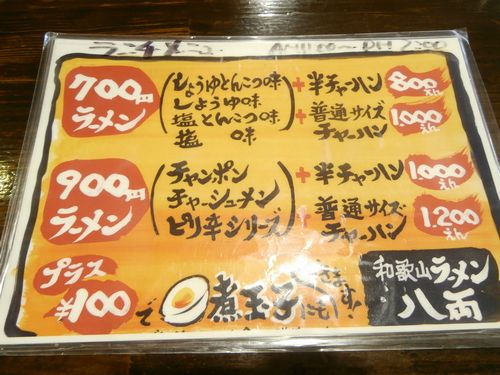 ランチメニュー AM11:00〜PM2:00
700円ラーメン
しょうゆとんこつ味
しょうゆ味
塩とんこつ味
塩 味
+半チャーハン 800えん
+普通サイズチャーハン 1,000えん
900円ラーメン
チャンポン
チャーシュメン
ピリ辛シリーズ
+半チャーハン 1,000えん
+普通サイズチャーハン 1,200えん
プラス¥100
で 煮玉子
にも
和歌山ラーメン
八両